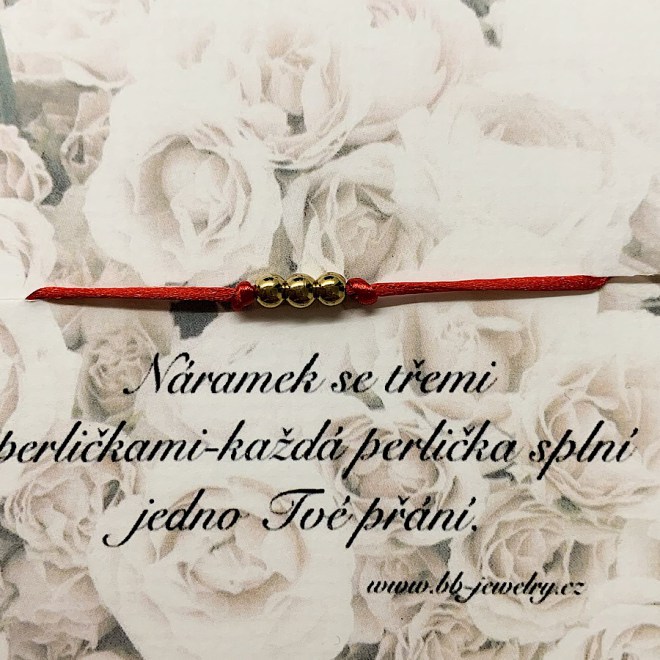 Náramek se třemi
perličkami-každá perlička splní
jedno Tvé přání.
www.bb-jewelry.cz